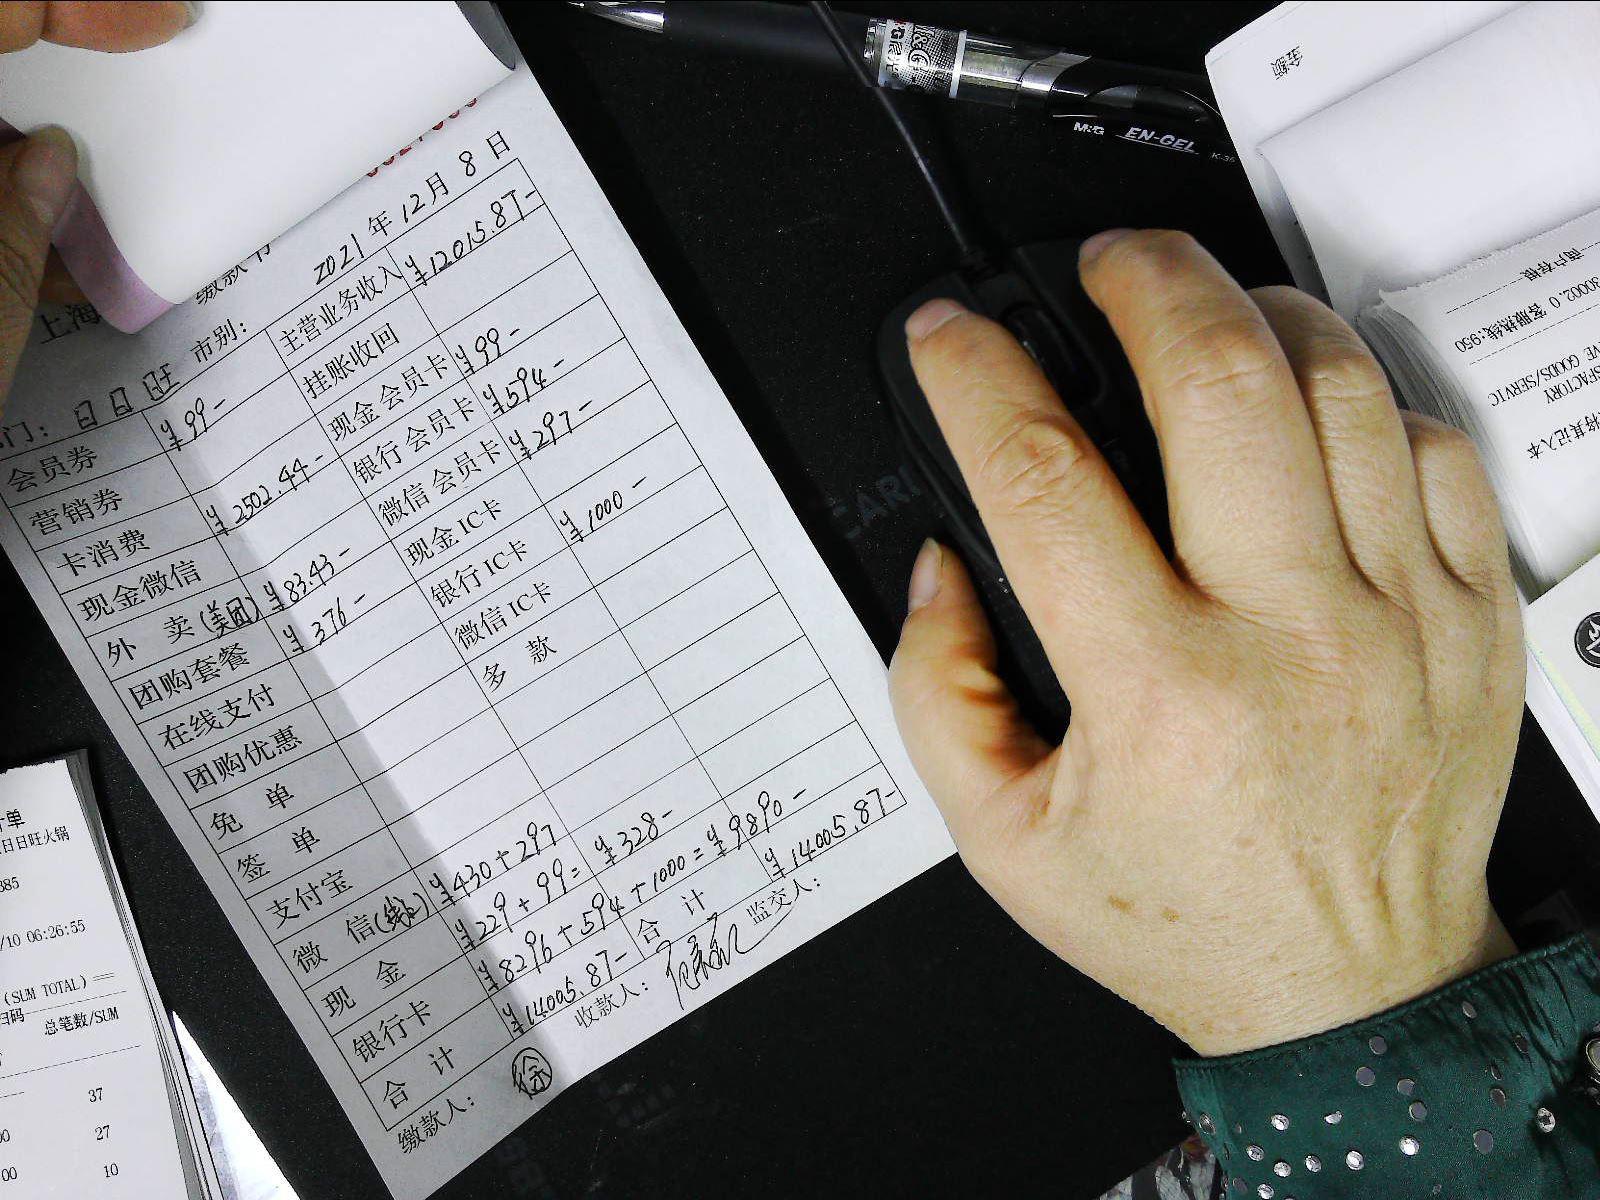 缴款书
上海
2021年12月8日
门: 日日旺 市别:
会员券 ¥99- 主营业务收入 ¥12015.87-
营销券 挂账收回
卡消费 ¥2502.44- 现金会员卡 ¥99-
现金微信 银行会员卡 ¥594-
外 卖(美团) ¥83.43- 微信会员卡 ¥297-
团购套餐 ¥376- 现金IC卡
在线支付 银行IC卡 ¥1000-
团购优惠 微信IC卡
免 单 多 款
签 单
支付宝
微 信(线上) ¥430+297
现 金 ¥229+99= ¥328-
银行卡 ¥8296+594+1000=¥9890-
合 计 ¥14005.87- 合 计 ¥14005.87-
缴款人: 徐 收款人: 监交人:
M&G EN-GEL K-35
金额
商户存根
30002.0 客服热线:950
VE GOODS/SERVIC
SFACTORY
将其记入本
CARE
单
日日旺火锅
385
/10 06:26:55
(SUM TOTAL)==
扫码 总笔数/SUM
37
00 27
00 10